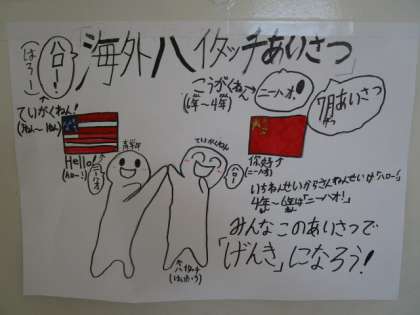 海外ハイタッチあいさつ
ハロー!
(はろー)
こうがくねん
(6年~4年)
ニーハオ!
7月あいさつ
ていがくねん!
Hello!
(ハロー!)
ニーハオ
高学年
ていがくねん
ハロー!
你好!
(ニーハオ)
いちねんせいからさんねんせいは「ハロー!」
4年~6年は「ニーハオ!」
みんなこのあいさつで
「げんき」になろう!
ハイタッチ